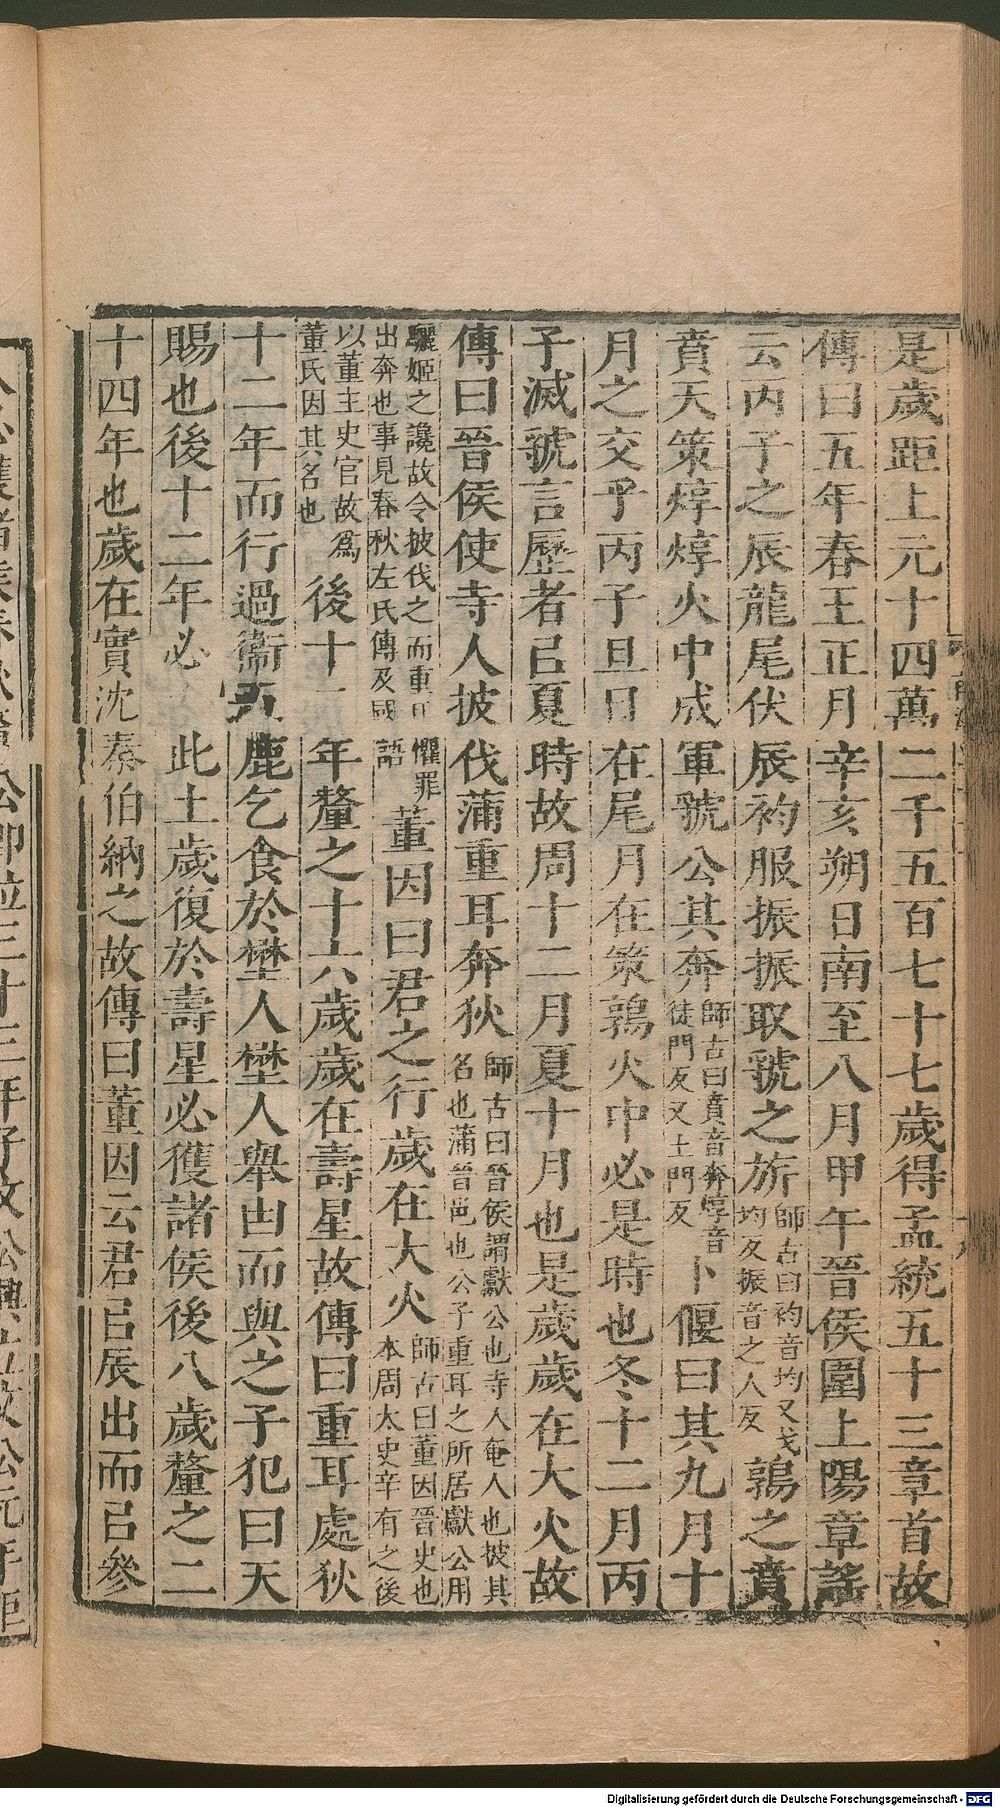 是歲距上元十四萬二千五百七十七歲得孟統五十三章首故
傳曰五年春王正月辛亥朔日南至八月甲午晉侯圍上陽童謠
云丙子之辰龍尾伏辰袀服振振取虢之旂師古曰袀音均又弋均反振音之人反鶉之賁
賁天策焞焞火中成軍虢公其奔師古曰賁音奔焞音徒門反又土門反卜偃曰其九月十
月之交乎丙子旦日在尾月在策鶉火中必是時也冬十二月丙
子滅虢言歷者㠯夏時故周十二月夏十月也是歲歲在大火故
傳曰晉侯使寺人披伐蒲重耳奔狄師古曰晉侯謂獻公也寺人奄人也披其名也蒲晉邑也公子重耳之所居獻公用
驪姬之讒故令披伐之而重耳懼罪出奔也事見春秋左氏傳及國語董因曰君之行歲在大火師古曰董因晉史也本周太史辛有之後
以董主史官故爲董氏因其名也後十一年釐之十六歲歲在壽星故傳曰重耳處狄
十二年而行過衞五鹿乞食於壄人壄人舉凷而與之子犯曰天
賜也後十二年必 此土歲復於壽星必獲諸侯後八歲釐之二
十四年也歲在實沈秦伯納之故傳曰董因云君㠯辰出而㠯參
公即位三十三年子文公興立文公元年距
Digitalisierung gefördert durch die Deutsche Forschungsgemeinschaft - DFG